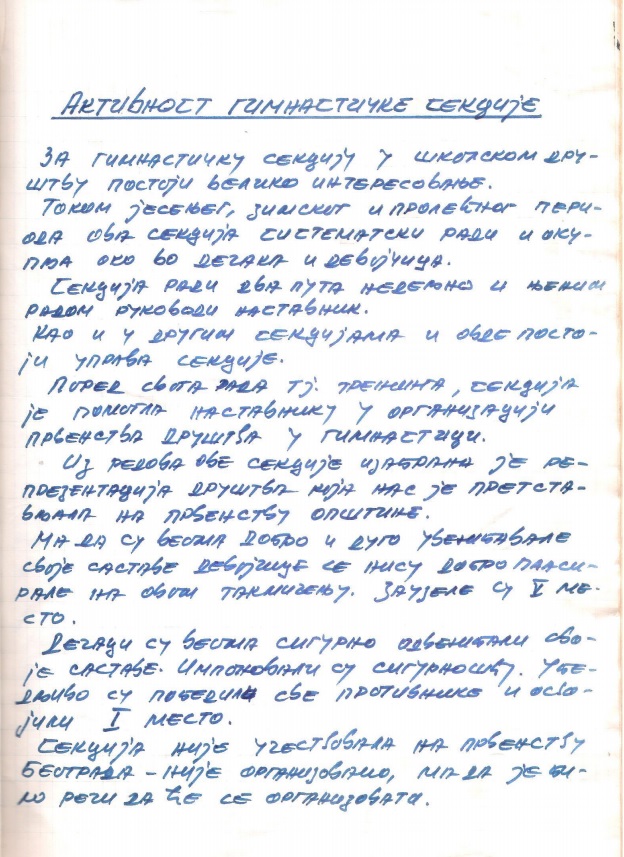 АКТИВНОСТ ГИМНАСТИЧКЕ СЕКЦИЈЕ
ЗА ГИМНАСТИЧКУ СЕКЦИЈУ У ШКОЛСКОМ ДРУ-
ШТВУ ПОСТОЈИ ВЕЛИКО ИНТЕРЕСОВАЊЕ.
ТОКОМ ЈЕСЕЊЕГ, ЗИМСКОГ И ПРОЛЕЋНОГ ПЕРИ-
ОДА ОВА СЕКЦИЈА СИСТЕМАТСКИ РАДИ И ОКУ-
ПЉА ОКО 60 ДЕЧАКА И ДЕВОЈЧИЦА.
СЕКЦИЈА РАДИ ДВА ПУТА НЕДЕЉНО И ЊЕНИМ
РАДОМ РУКОВОДИ НАСТАВНИК.
КАО И У ДРУГИМ СЕКЦИЈАМА И ОВДЕ ПОСТО-
ЈИ УПРАВА СЕКЦИЈЕ.
ПОРЕД СВОГА РАДА ТЈ. ТРЕНИНГА, СЕКЦИЈА
ЈЕ ПОМОГЛА НАСТАВНИКУ У ОРГАНИЗАЦИЈИ
ПРВЕНСТВА ДРУШТВА У ГИМНАСТИЦИ.
ИЗ РЕДОВА ОВЕ СЕКЦИЈЕ ИЗАБРАНА ЈЕ РЕ-
ПРЕЗЕНТАЦИЈА ДРУШТВА КОЈА НАС ЈЕ ПРЕТСТА-
ВЉАЛА НА ПРВЕНСТВУ ОПШТИНЕ.
МА ДА СУ ВЕОМА ДОБРО И ДУГО УВЕЖБАВАЛЕ
СВОЈЕ САСТАВЕ ДЕВОЈЧИЦЕ СЕ НИСУ ДОБРО ПЛАСИ-
РАЛЕ НА ОВОМ ТАКМИЧЕЊУ. ЗАУЗЕЛЕ СУ V МЕ-
СТО.
ДЕЧАЦИ СУ ВЕОМА СИГУРНО ОДВЕЖБАЛИ СВО-
ЈЕ САСТАВЕ. ИМПОНОВАЛИ СУ СИГУРНОШЋУ. УБЕ-
ДЉИВО СУ ПОБЕДИЛИ СВЕ ПРОТИВНИКЕ И ОСВО-
ЈИЛИ I МЕСТО.
СЕКЦИЈА НИЈЕ УЧЕСТВОВАЛА НА ПРВЕНСТВУ
БЕОГРАДА – НИЈЕ ОРГАНИЗОВАНО, МА ДА ЈЕ БИ-
ЛО РЕЧИ ДА ЋЕ СЕ ОРГАНИЗОВАТИ.